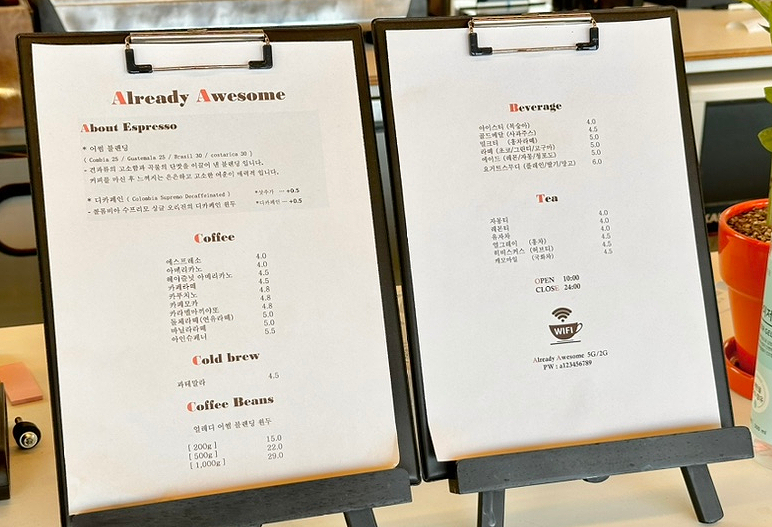 Already Awesome
About Espresso
* 어썸 블랜딩
( Combia 25 / Guatemala 25 / Brazil 30 / costarica 30 )
- 견과류의 고소함과 곡물의 단맛을 이끌어 낸 블랜딩 입니다.
커피를 마신 후 느껴지는 은은하고 고소한 여운이 매력적 입니다.
* 디카페인 ( Colombia Supremo Decaffeinated )
- 콜롬비아 수프리모 싱글 오리진의 디카페인 원두
*샷추가 ㅡ +0.5
*디카페인 ㅡ +0.5
Coffee
에스프레소 4.0
아메리카노 4.0
헤이즐넛 아메리카노 4.5
카페라떼 4.5
카푸치노 4.8
카페모카 4.8
카라멜마끼야또 4.8
돌체라떼(연유라떼) 5.0
바닐라라떼 5.0
아인슈페너 5.5
Cold brew
과테말라 4.5
Coffee Beans
얼레디 어썸 블랜딩 원두
[ 200g ] 15.0
[ 500g ] 22.0
[ 1,000g ] 29.0
Beverage
아이스티 (복숭아) 4.0
골드메달 (사과주스) 4.5
밀크티 (홍차라떼) 5.0
라떼 (초코/그린티/고구마) 5.0
에이드 (레몬/자몽/청포도) 5.0
요거트스무디 (플레인/딸기/망고) 6.0
Tea
자몽티 4.0
레몬티 4.0
유자차 4.0
얼그레이 (홍차) 4.5
히비스커스 (허브티) 4.5
캐모마일 (국화차) 4.5
OPEN 10:00
CLOSE 24:00
WIFI
Already Awesome 5G/2G
PW : a123456789